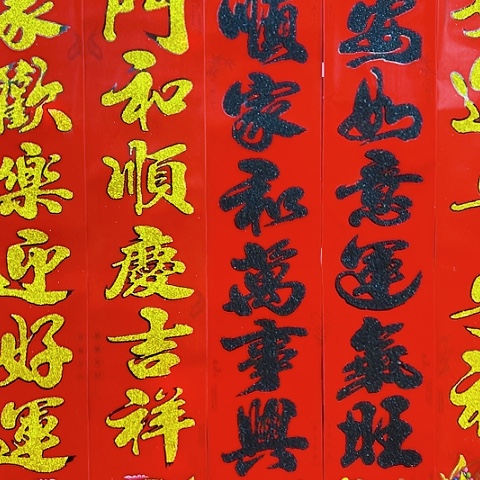 安如意運氣旺
順家和萬事興
門和順慶吉祥
家歡樂迎好運